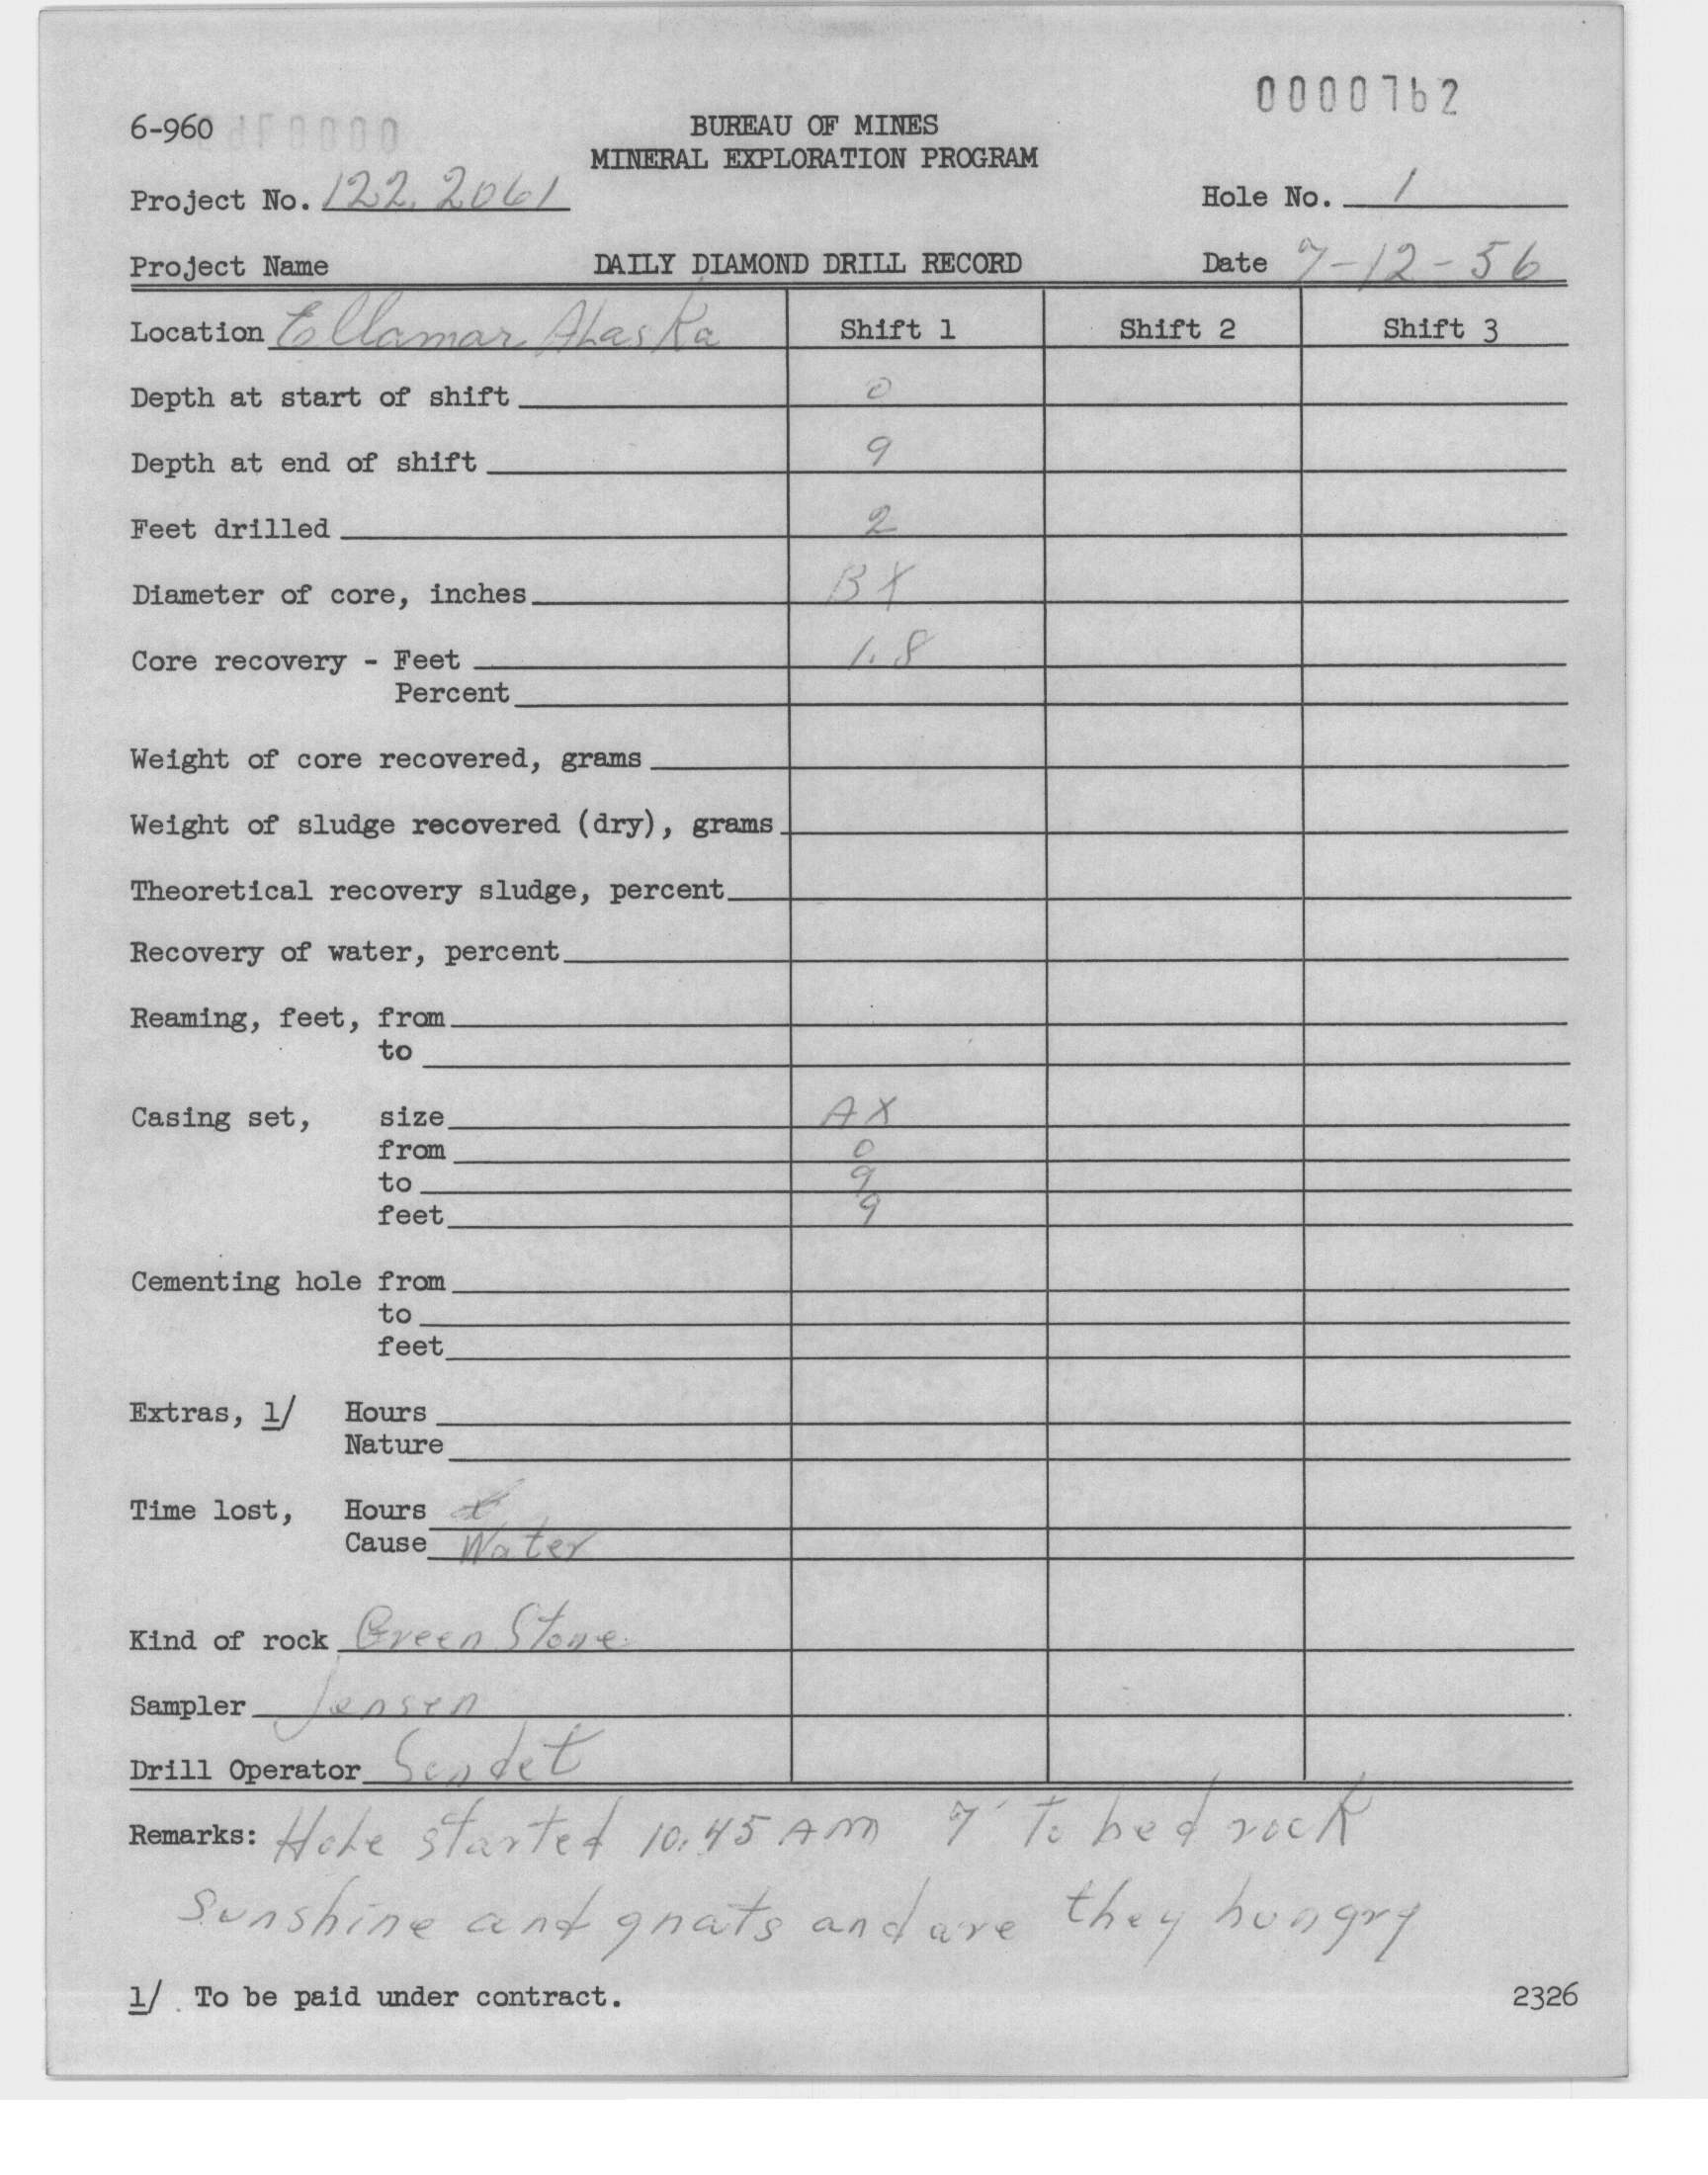 0000762
6-960
BUREAU OF MINES
MINERAL EXPLORATION PROGRAM
Project No. 122.2061
Hole No. 1
Project Name
DAILY DIAMOND DRILL RECORD
Date 7-12-56
Location Ellamar Alaska Shift 1 Shift 2 Shift 3
Depth at start of shift 0
Depth at end of shift 9
Feet drilled 2
Diameter of core, inches BX
Core recovery - Feet 1.8
Percent
Weight of core recovered, grams
Weight of sludge recovered (dry), grams
Theoretical recovery sludge, percent
Recovery of water, percent
Reaming, feet, from
to
Casing set, size AX
from 0
to 9
feet 9
Cementing hole from
to
feet
Extras, 1/ Hours
Nature
Time lost, Hours
Cause Water
Kind of rock Green Stone
Sampler Jensen
Drill Operator
Remarks: Hole started 10:45 AM 7' To bed rock
Sunshine and gnats and are they hungry
1/ To be paid under contract.
2326